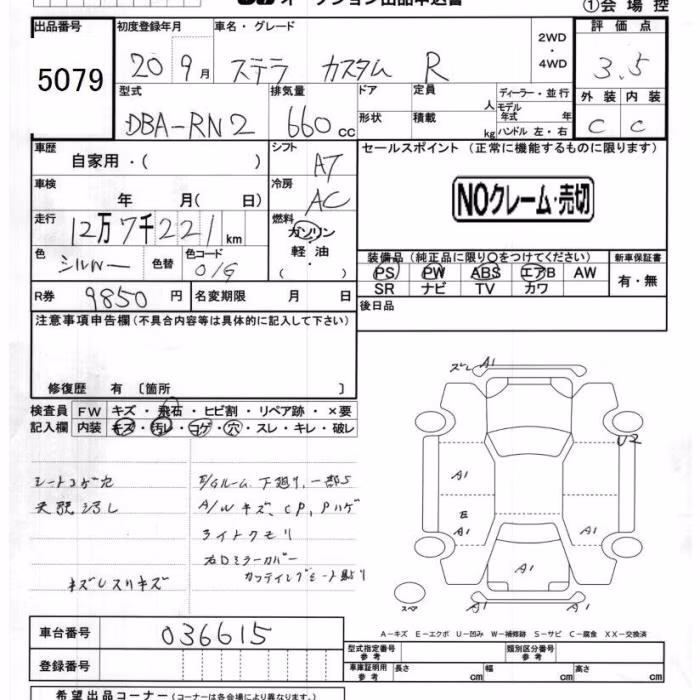 オークション出品申込書 ①会場控
出品番号 初度登録年月 車名・グレード 2WD・4WD 評価点
5079 20 9月 ステラ カスタム R 3.5
型式 排気量 ドア 定員 人 ディーラー・並行 外装 内装
DBA-RN2 660cc 形状 積載 kg モデル年式 年 ハンドル 左・右 C C
車歴 自家用・( ) シフト AT セールスポイント (正常に機能するものに限ります)
車検 年 月(日) 冷房 AC
NOクレーム・売切
走行 12万7千221km 燃料 ガソリン・軽油
色 シルバー 色替 色コード 01G
装備品(純正品に限り○をつけてください) 新車保証書
PS PW ABS エアB AW 有・無
SR ナビ TV カワ
R券 9850円 名変期限 月 日 後日品
注意事項申告欄(不具合内容等は具体的に記入して下さい)
修復歴 有 〔箇所 〕
検査員 FW キズ・飛石・ヒビ割・リペア跡・×要
記入欄 内装 キズ・汚レ・コゲ・穴・スレ・キレ・破レ
シートコゲ穴
天張汚レ
キズUスリキズ
E/Gルーム、下廻り、一部S
A/Wキズ、CP、Pハゲ
ライトクモリ
右Dミラーカバー
カッティングシート貼り
ズレ A1
U2
A1
E
A1 A1
A1
スペア A1
A－キズ E－エクボ U－凹み W－補修跡 S－サビ C－腐食 XX－交換済
車台番号 036615
登録番号
型式指定番号 参考 類別区分番号 参考
車庫証明用 参考 長さ cm 幅 cm 高さ cm
希望出品コーナー(コーナーは各会場により異なります。)